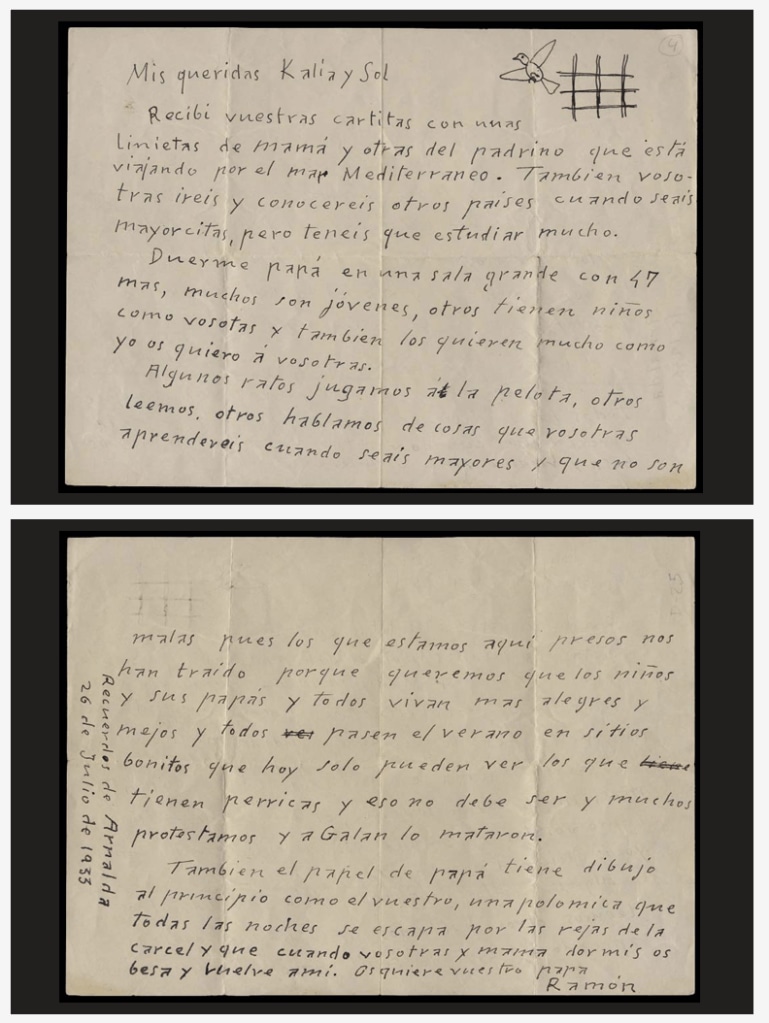 4
Mis queridas Kalía y Sol
Recibi vuestras cartitas con unas
linietas de mamá y otras del padrino que está
viajando por el mar Mediterraneo. Tambien voso-
tras ireis y conocereis otros paises cuando seais
mayorcitas, pero teneis que estudiar mucho.
Duerme papá en una sala grande con 47
mas, muchos son jóvenes, otros tienen niños
como vosotas y tambien los quieren mucho como
yo os quiero á vosotras.
Algunos ratos jugamos á la pelota, otros
leemos, otros hablamos de cosas que vosotras
aprendereis cuando seais mayores y que no son
malas pues los que estamos aqui presos nos
han traido porque queremos que los niños
y sus papás y todos vivan mas alegres y
mejos y todos ver pasen el verano en sitios
bonitos que hoy solo pueden ver los que tiene
tienen perricas y eso no debe ser y muchos
protestamos y a Galan lo mataron.
Tambien el papel de papá tiene dibujo
al principio como el vuestro, una polomica que
todas las noches se escapa por las rejas de la
carcel y que cuando vosotras y mama dormis os
besa y vuelve ami. Os quiere vuestro papa
Ramón
Recuerdos de Arnalda
26 de Julio de 1933